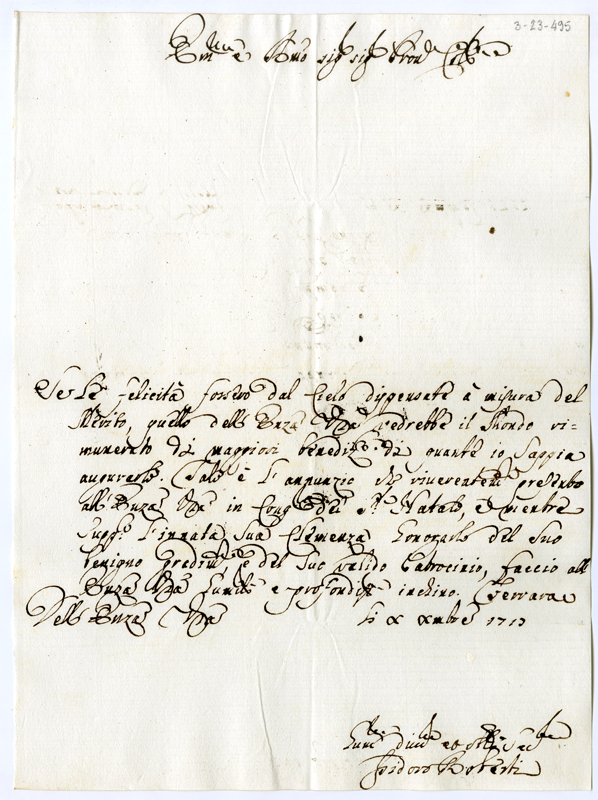 3-23-495
Em.mo e Rmo sig.r sig.r Pron
Se le felicità fossero dal Cielo dispensate à misura del
Merito, quello dell' Emza Vra vedrebbe il Mondo ri-
munerato di maggiori benediz.ni di quante io sappia
augurarle. Tale è l'annunzio che riverentem.te presento
all' Emza Vra in Cong.ra del S. Natale, e mentre
supp.co l'innata sua Clemenza honorarlo del suo
benigno gradim.to, e del suo valido Patrocinio, faccio all'
Emza Vra humiliss.o e profondiss.o inchino. Ferrara
Dell' Emza Vra li X Xmbre 1713
Hum.mo div.mo et obl.mo Se
Isidoro Roberti